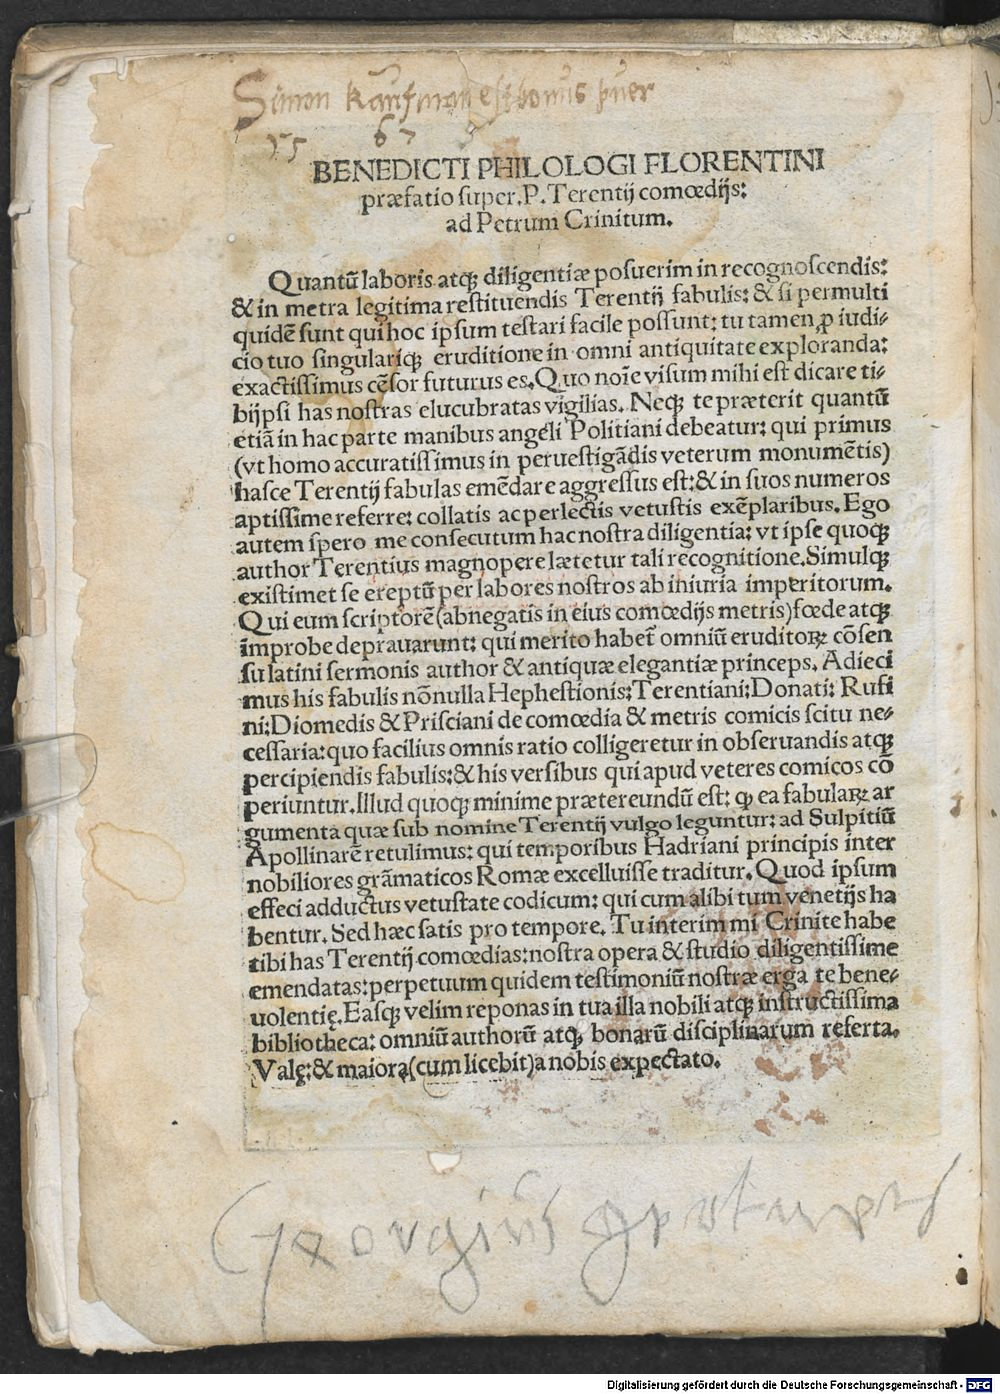 Simon Kaufman est bonus puer
15 67
BENEDICTI PHILOLOGI FLORENTINI
præfatio super.P.Terentij comœdijs:
ad Petrum Crinitum.
Quantũ laboris atqꝫ diligentiæ posuerim in recognoscendis:
& in metra legitima restituendis Terentij fabulis: & si permulti
quidẽ sunt qui hoc ipsum testari facile possunt: tu tamen ꝓ iudi-
cio tuo singulariqꝫ eruditione in omni antiquitate exploranda:
exactissimus cẽsor futurus es.Quo noĩe visum mihi est dicare ti-
bijpsi has nostras elucubratas vigilias. Neqꝫ te præterit quantũ
etiã in hac parte manibus angeli Politiani debeatur: qui primus
(vt homo accuratissimus in peruestigãdis veterum monumẽtis)
hasce Terentij fabulas emẽdare aggressus est:& in suos numeros
aptissime referre: collatis ac perlectis vetustis exẽplaribus. Ego
autem spero me consecutum hac nostra diligentia: vt ipse quoqꝫ
author Terentius magnopere lætetur tali recognitione.Simulqꝫ
existimet se ereptũ per labores nostros ab iniuria imperitorum.
Qui eum scriptorẽ(abnegatis in eius comœdijs metris)fœde atqꝫ
improbe deprauarunt: qui merito habet̃ omniũ eruditoꝝ cõsen
su latini sermonis author & antiquæ elegantiæ princeps. Adieci
mus his fabulis nõnulla Hephestionis:Terentiani:Donati: Rufi
ni:Diomedis & Prisciani de comœdia & metris comicis scitu ne-
cessaria:quo facilius omnis ratio colligeretur in obseruandis atqꝫ
percipiendis fabulis:& his versibus qui apud veteres comicos cõ
periuntur.Illud quoqꝫ minime prætereundũ est: ꝙ ea fabulaꝝ ar
gumenta quæ sub nomine Terentij vulgo leguntur: ad Sulpitiũ
Apollinarẽ retulimus: qui temporibus Hadriani principis inter
nobiliores grãmaticos Romæ excelluisse traditur.Quod ipsum
effeci adductus vetustate codicum: qui cum alibi tum venetijs ha
bentur. Sed hæc satis pro tempore. Tu interim mi Crinite habe
tibi has Terentij comœdias:nostra opera & studio diligentissime
emendatas:perpetuum quidem testimoniũ nostræ erga te bene-
uolentię.Easqꝫ velim reponas in tua illa nobili atqꝫ instructissima
bibliotheca: omniũ authorũ atqꝫ bonarũ disciplinarum referta.
Valę:& maiora(cum licebit)a nobis expectato.
Georgius
Digitalisierung gefördert durch die Deutsche Forschungsgemeinschaft - DFG